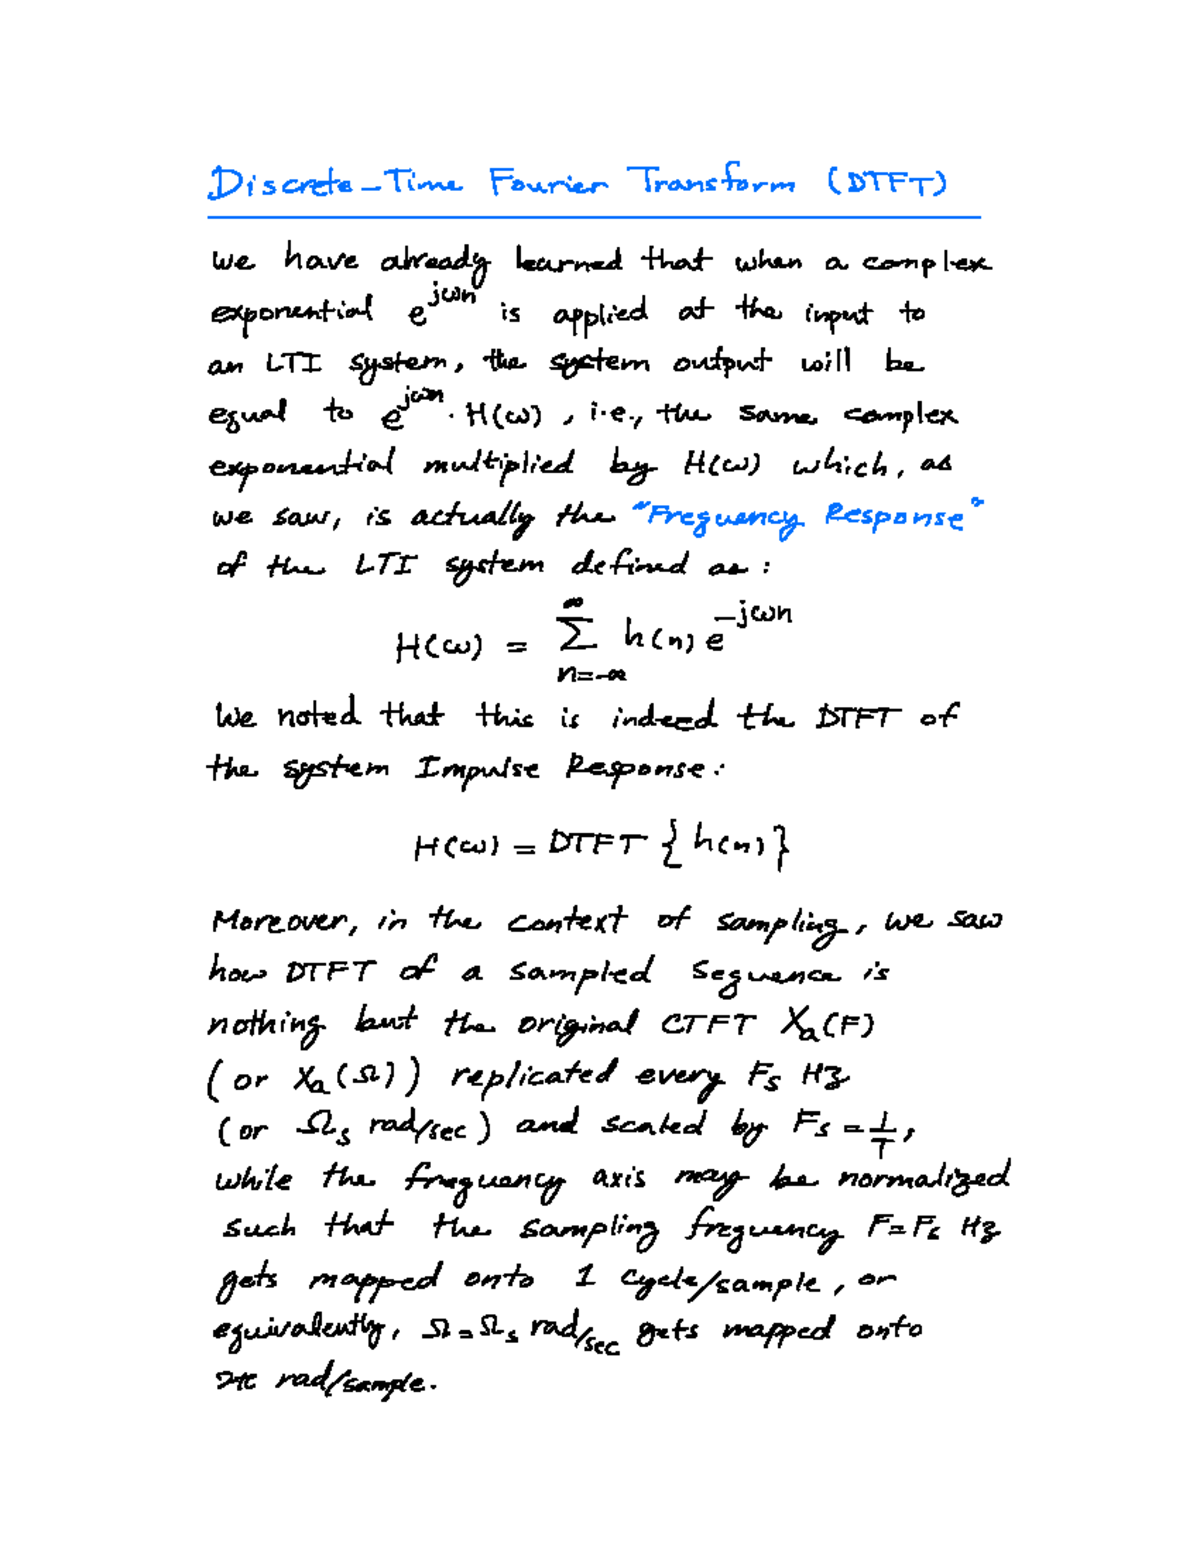 Discrete-Time Fourier Transform (DTFT)
We have already learned that when a complex
exponential e^{jωn} is applied at the input to
an LTI system, the system output will be
equal to e^{jωn} · H(ω), i.e., the same complex
exponential multiplied by H(ω) which, as
we saw, is actually the "Frequency Response"
of the LTI system defined as:
H(ω) = ∑_{n=-∞}^{∞} h(n) e^{-jωn}
We noted that this is indeed the DTFT of
the system Impulse Response:
H(ω) = DTFT {h(n)}
Moreover, in the context of sampling, we saw
how DTFT of a sampled sequence is
nothing but the original CTFT Xa(F)
(or Xa(Ω)) replicated every Fs Hz
(or Ωs rad/sec) and scaled by Fs = 1/T,
while the frequency axis may be normalized
such that the sampling frequency F=Fs Hz
gets mapped onto 1 cycle/sample, or
equivalently, Ω=Ωs rad/sec gets mapped onto
2π rad/sample.